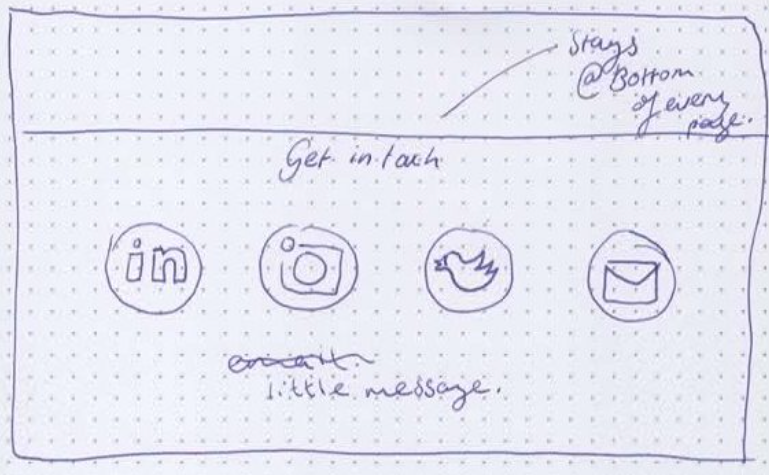 Stays
@ Bottom
of every
page.
Get in touch
in
email.
little message.